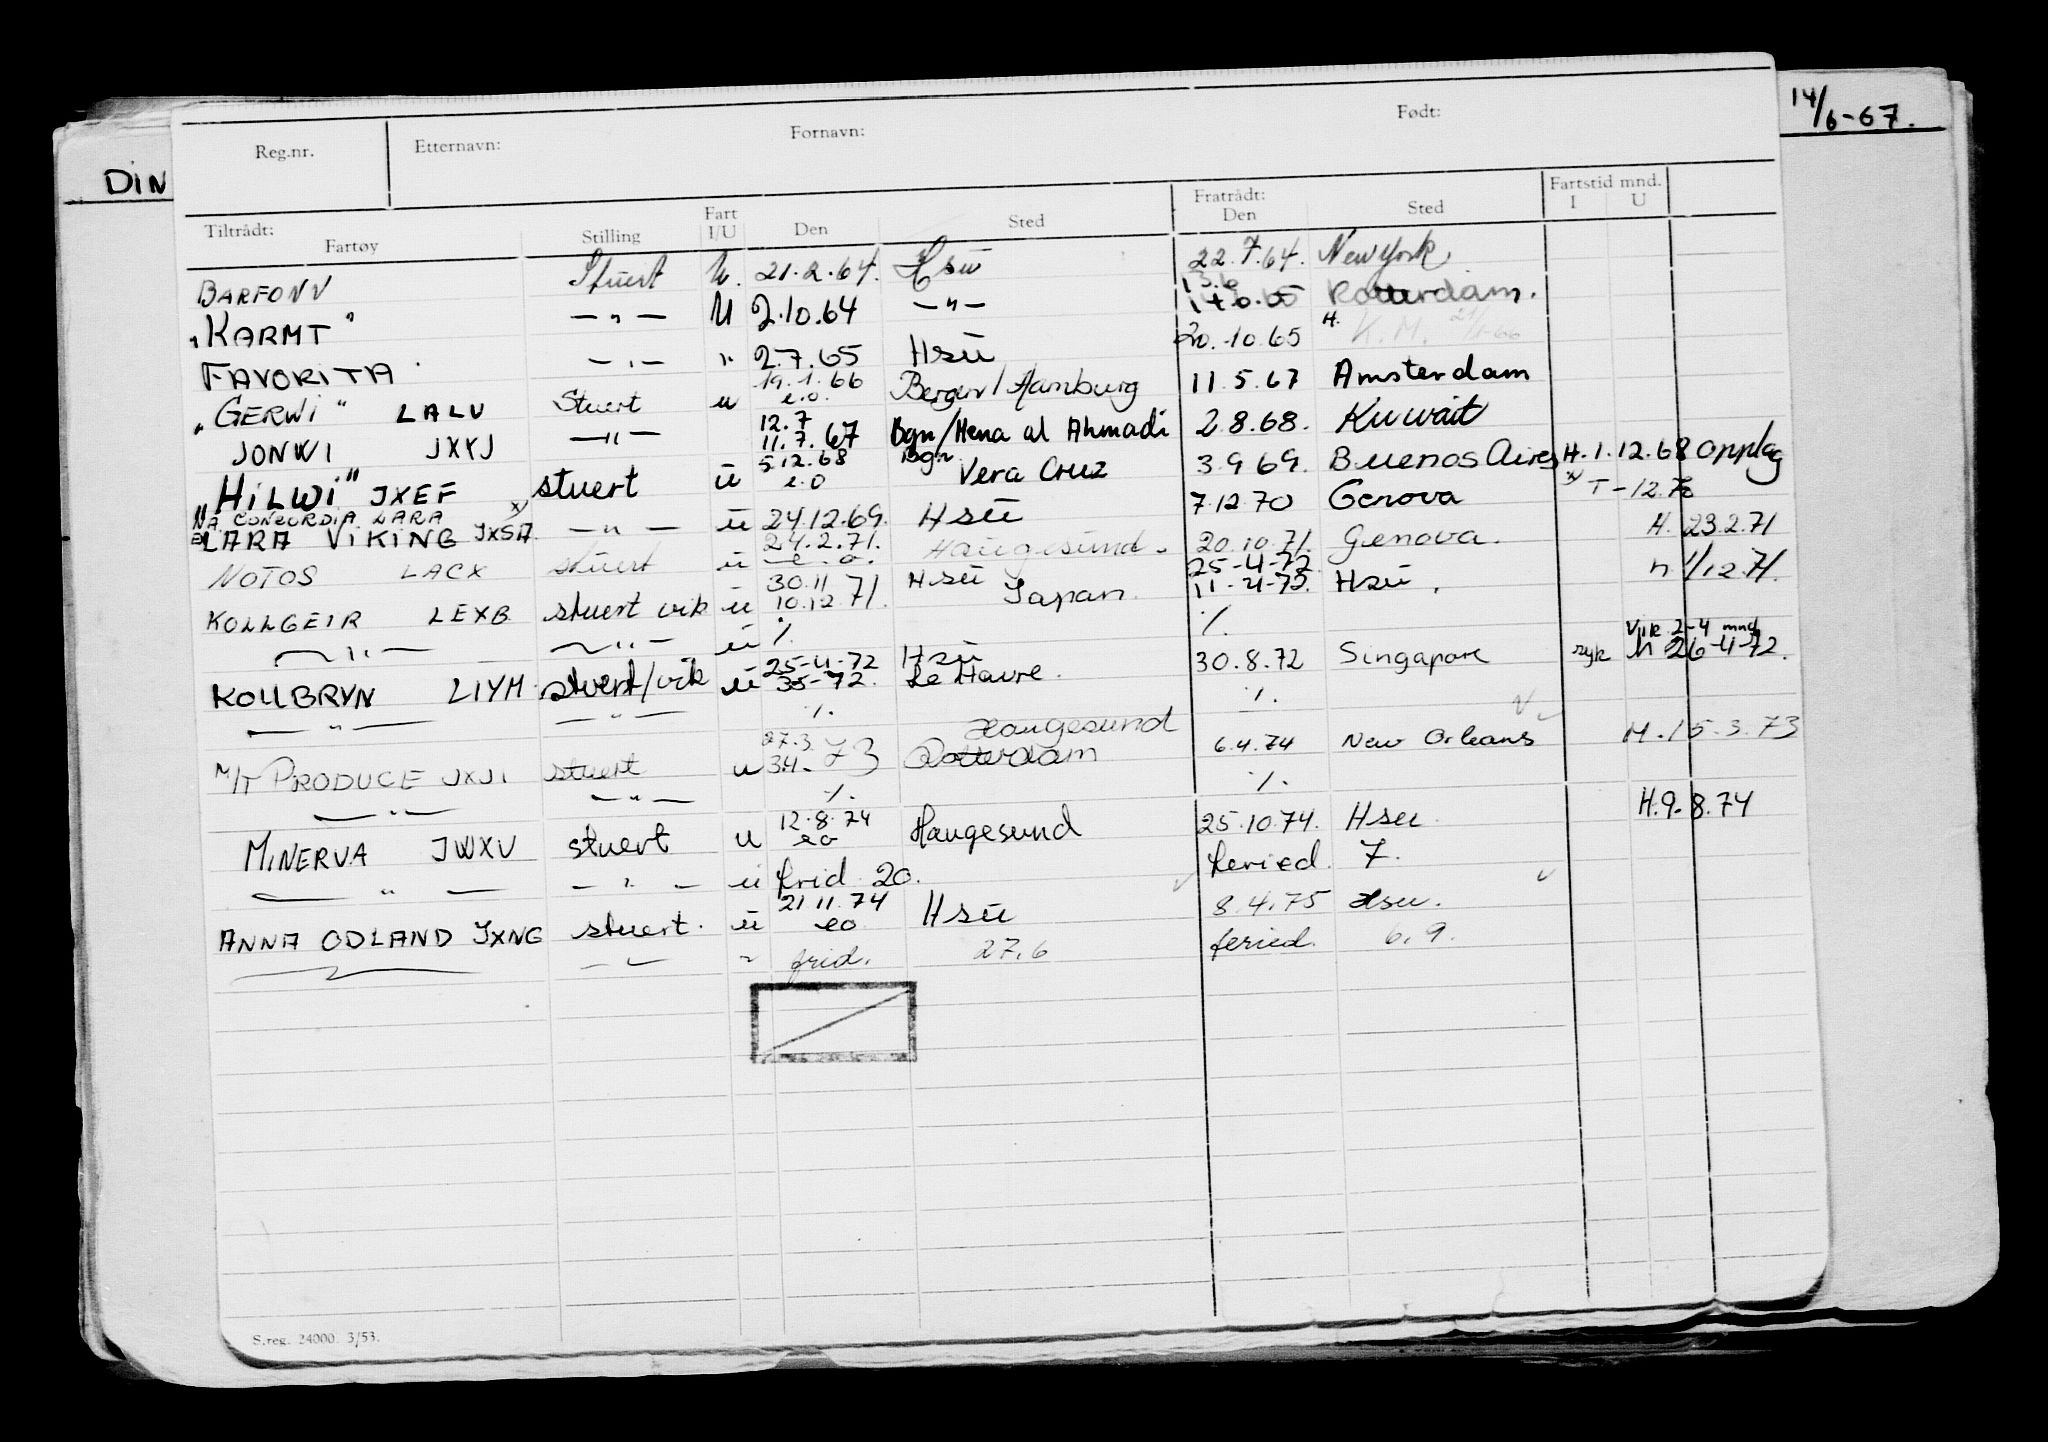 DIN
14/6-67.
Reg.nr. Etternavn: Fornavn: Født:
Tiltrådt: Fratrådt: Fartstid mnd.
Fartøy Stilling Fart I/U Den Sted Den Sted I U
BARFONN Stuert U. 21.2.64. Hsu 22.7.64. New York
13.6
"KARMT" — " — U 2.10.64 — " — Rotterdam.
FAVORITA — " — " 2.7.65 Hsu 20.10.65 H. K.M.
19.1.66
"GERWI" LALV Stuert u e.o. Bergen/Hamburg 11.5.67 Amsterdam
12.7
JONWI JXYJ — " — 11.7.67 Bgn/Mena al Ahmadi 2.8.68. Kuwait
5.12.68 Bgn
"HILWI" JXEF stuert u e.o Vera Cruz 3.9.69. Buenos Aires H.1.12.68 opplag
NÅ CONCORDIA LARA x) x) T-12.70
EX LARA VIKING JXSA — " — u 24.12.69. Hsu 7.12.70 Genova
24.2.71.
NOTOS LACX stuert u e.o. Haugesund. 20.10.71. Genova. H. 23.2.71
30.11 Hsu 25-4-72
KOLLGEIR LEXB stuert vik u 10.12.71. Japan 11-4-72. Hsu. h 1/12.71.
— " — — " — u %. %.
25-4-72 Hsu Vik 2-4 mnd
KOLLBRYN LIYM stuert/vik u 3.5-72. Le Havre. 30.8.72 Singapore syk h 26-4-72.
— " — — " — %. %.
27.3 Haugesund
M/T PRODUCE JXJI stuert u 3.4.73 Rotterdam 6.4.74 New Orleans M.15.3.73
— " — — " — %. %.
12.8.74
MINERVA JWXV stuert u eo Haugesund 25.10.74. Hsu. H.9.8.74
— " — — " — u frid 20. feried. 7.
21.11.74
ANNA ODLAND JXNG stuert. u eo Hsu 8.4.75 Hsu.
— " — " frid. 27.6 feried. 6.9.
S.reg. 24000 3/53.